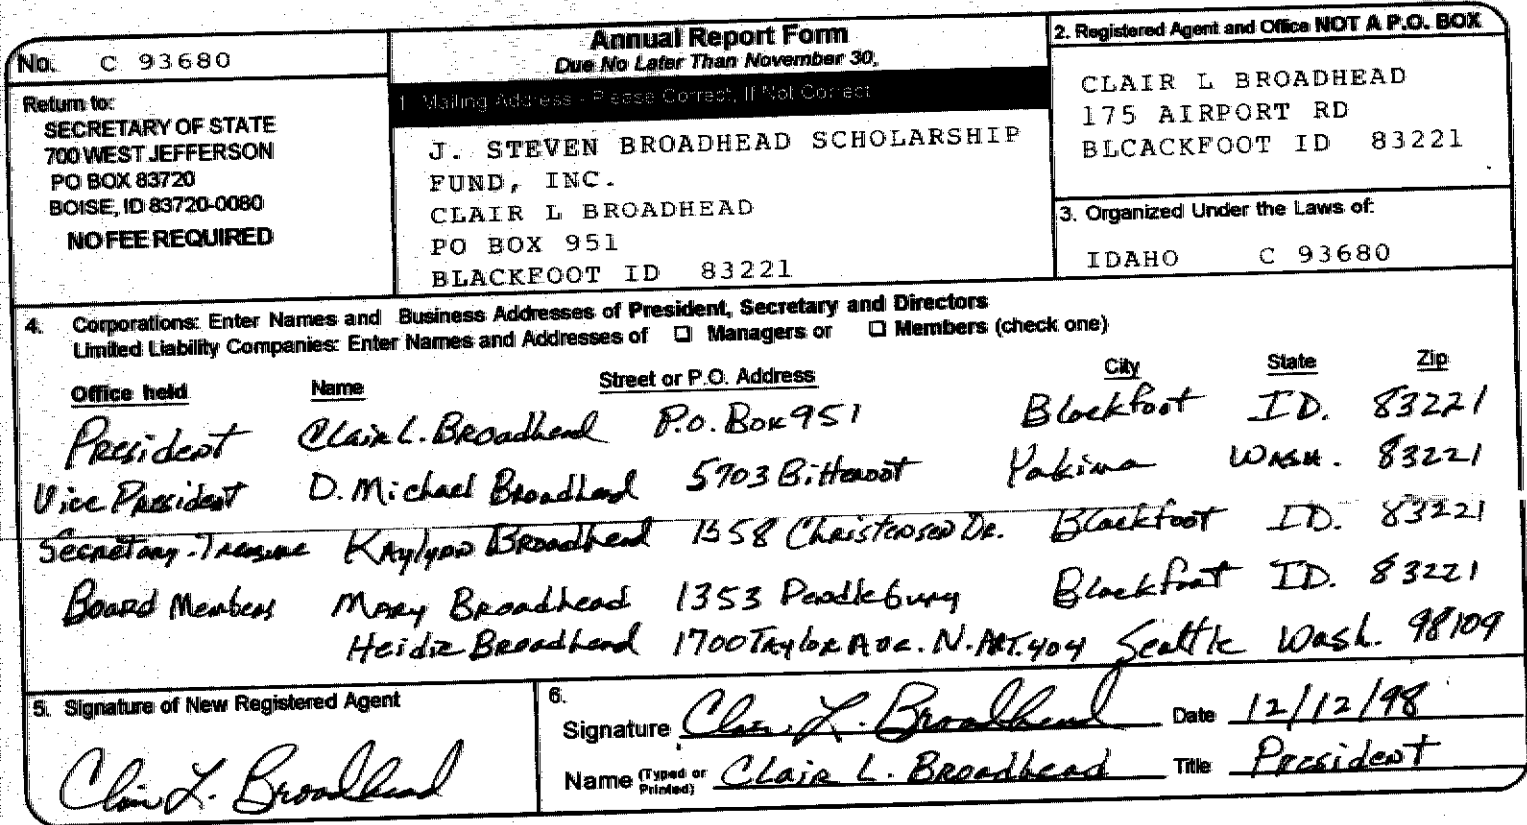 No. C 93680
Return to:
SECRETARY OF STATE
700 WEST JEFFERSON
PO BOX 83720
BOISE, ID 83720-0080
NO FEE REQUIRED
Annual Report Form
Due No Later Than November 30,
1. Mailing Address - Please Correct, If Not Correct
J. STEVEN BROADHEAD SCHOLARSHIP
FUND, INC.
CLAIR L BROADHEAD
PO BOX 951
BLACKFOOT ID 83221
2. Registered Agent and Office NOT A P.O. BOX
CLAIR L BROADHEAD
175 AIRPORT RD
BLCACKFOOT ID 83221
3. Organized Under the Laws of:
IDAHO C 93680
4. Corporations: Enter Names and Business Addresses of President, Secretary and Directors
Limited Liability Companies: Enter Names and Addresses of ☐ Managers or ☐ Members (check one)
Office held Name Street or P.O. Address City State Zip
President Clair L. Broadhead P.O. Box 951 Blackfoot ID. 83221
Vice President D. Michael Broadhead 5703 Bitteroot Yakima Wash. 83221
Secretary-Treasure Kaylynn Broadhead 1358 Christensen Dr. Blackfoot ID. 83221
Board Members Mary Broadhead 1353 Pendlebury Blackfoot ID. 83221
Heidi Broadhead 1700 Taylor Ave. N. APT. 404 Seattle Wash. 98109
5. Signature of New Registered Agent
Clair L. Broadhead
6.
Signature Clair L. Broadhead Date 12/12/98
Name (Typed or Printed) Clair L. Broadhead Title President